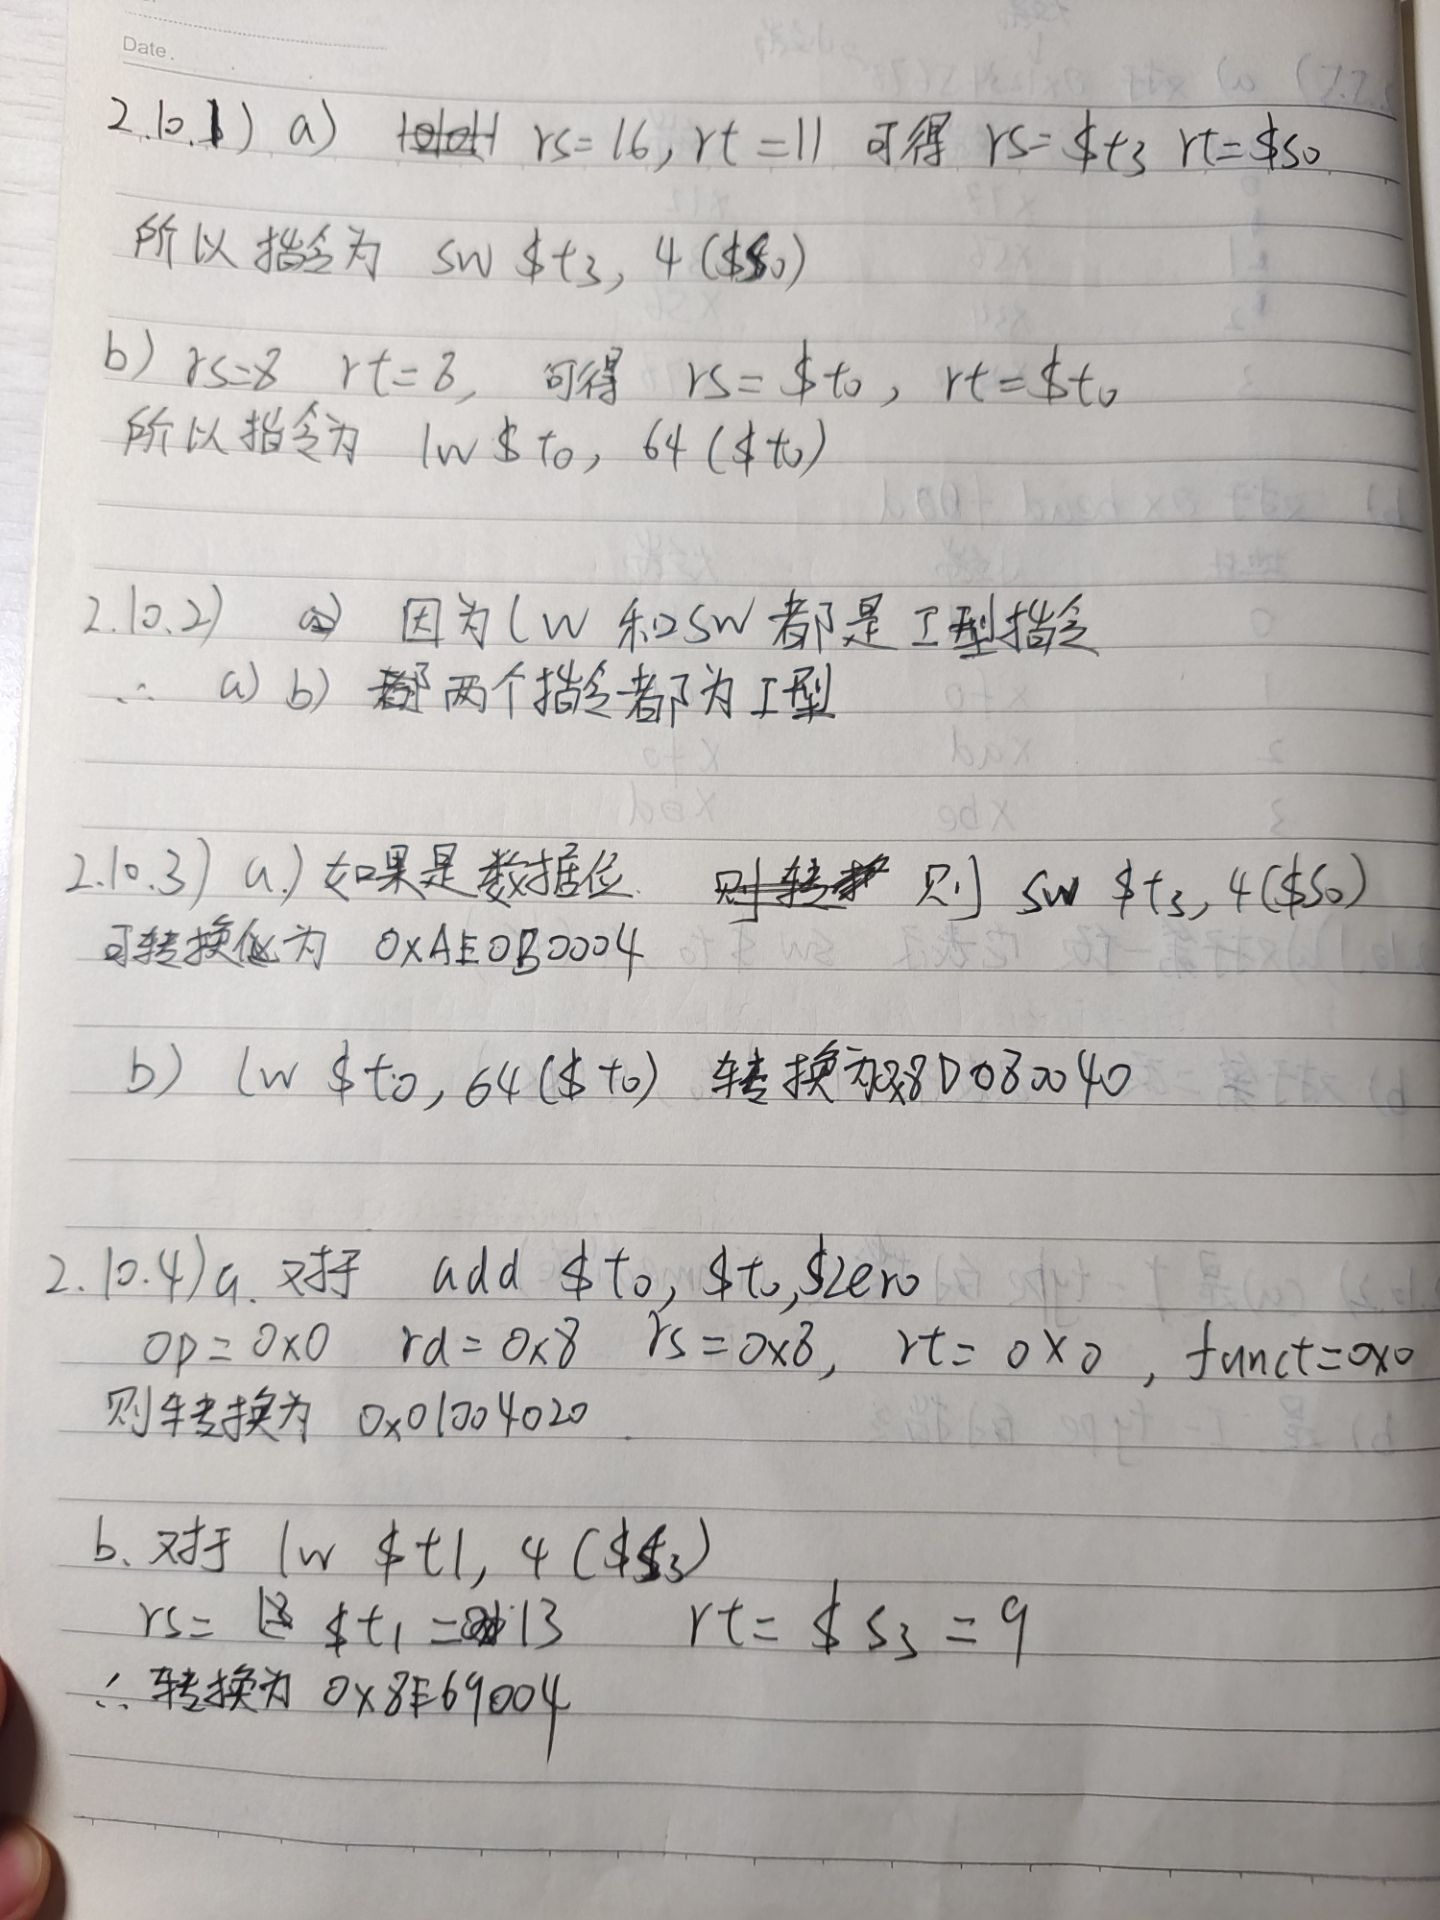 Date.
2.10.1) a) rs=16, rt=11 可得 rs=$t3 rt=$s0
所以指令为 sw $t3, 4($s0)
b) rs=8 rt=8, 可得 rs=$t0, rt=$t0
所以指令为 lw $t0, 64($t0)
2.10.2) 因为lw和sw都是I型指令
∴ a) b) 两个指令都为I型
2.10.3) a.) 如果是数据位 则 sw $t3, 4($s0)
可转换为 0xAE0B0004
b) lw $t0, 64($t0) 转换为0x8D080040
2.10.4) a. 对于 add $t0, $t0, $zero
op=0x0 rd=0x8 rs=0x8, rt=0x0, funct=0x0
则转换为 0x01004020
b. 对于 lw $t1, 4($s3)
rs= $t1=13 rt=$s3=9
∴ 转换为 0x8E69004